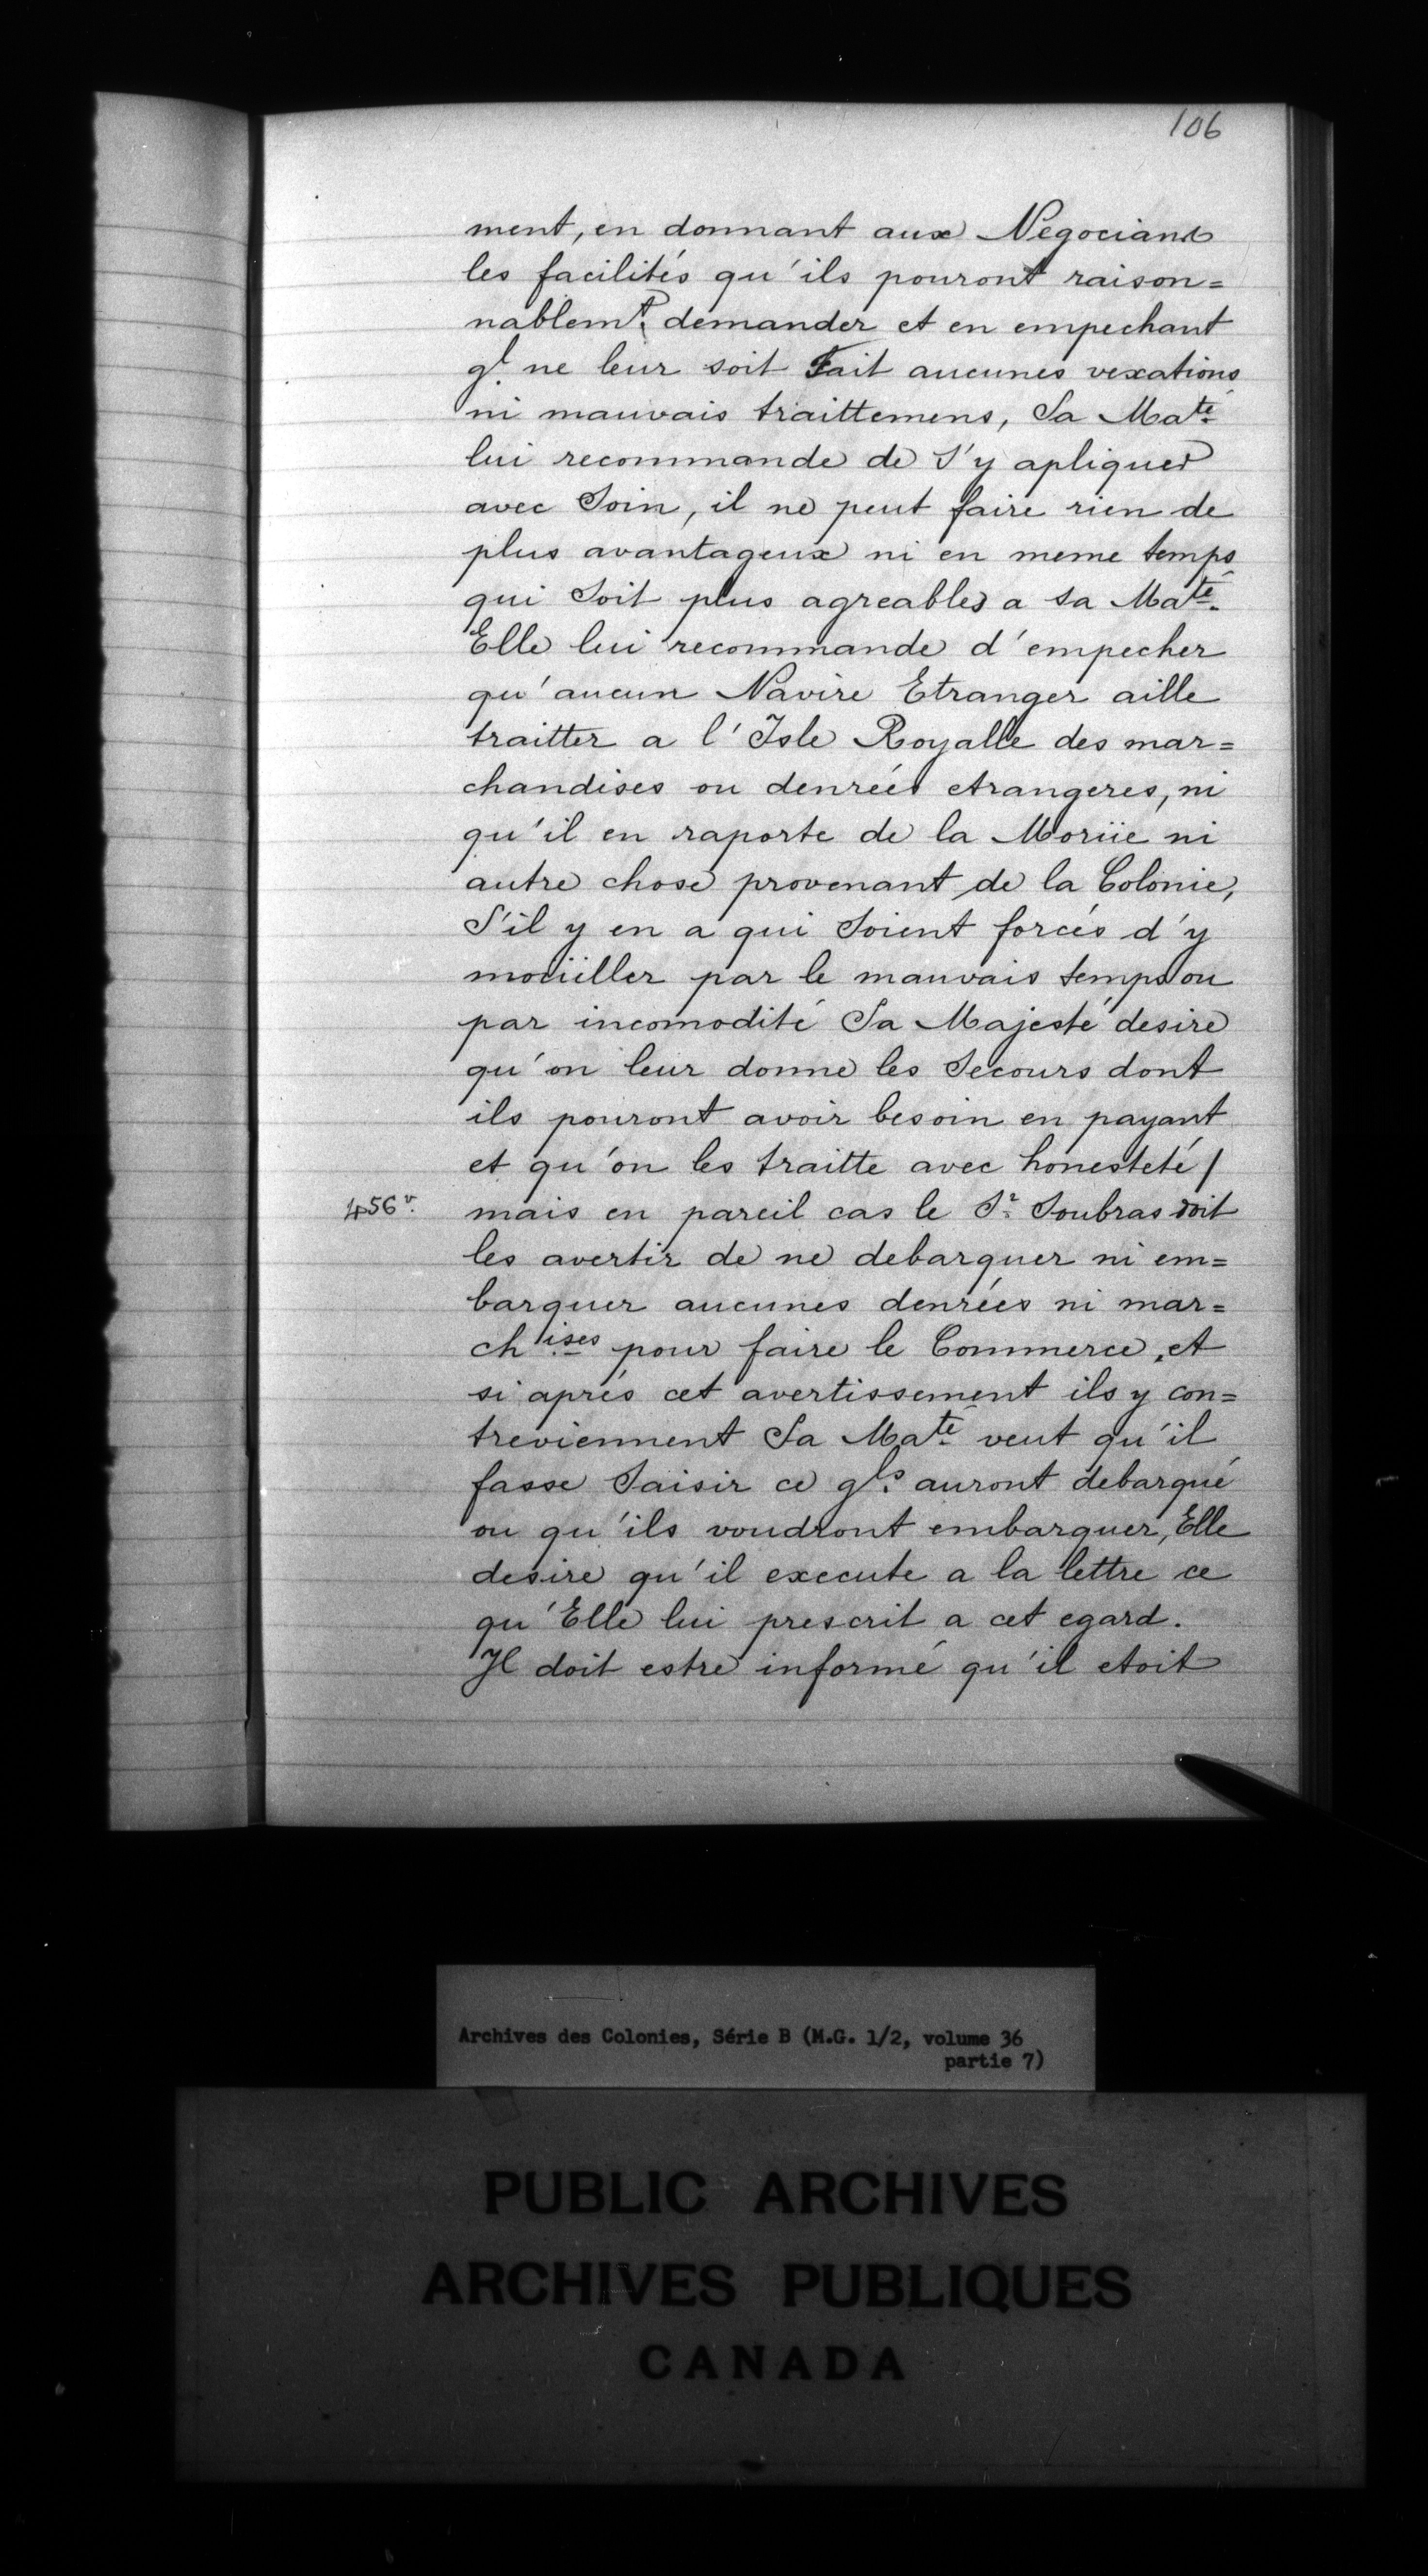 106
ment, en donnant aux Negocians
les facilités qu'ils pouront raison=
nablemt. demander et en empechant
ql. ne leur soit Fait aucunes vexations
ni mauvais traittemens, Sa Maté.
lui recommande de s'y apliquer
avec Soin, il ne peut faire rien de
plus avantageux ni en meme temps
qui Soit plus agreables a sa Maté.
Elle lui recommande d'empecher
qu'aucun Navire Etranger aille
traitter a l'Isle Royalle des mar=
chandises ou denrées etrangeres, ni
qu'il en raporte de la Moriie ni
autre chose provenant de la Colonie,
S'il y en a qui Soient forcés d'y
moüiller par le mauvais temps ou
par incomodité Sa Majesté desire
qu'on leur donne les Secours dont
ils pouront avoir besoin en payant
et qu'on les traitte avec honesteté /
456v. mais en pareil cas le Sr. Soubras doit
les avertir de ne debarquer ni em=
barquer aucunes denrées ni mar=
chises pour faire le Commerce, et
si aprés cet avertissement ils y con=
treviennent Sa Maté. veut qu'il
fasse Saisir ce qls. auront debarqué
ou qu'ils voudront embarquer, Elle
desire qu'il execute a la lettre ce
qu'Elle lui prescrit a cet egard.
Il doit estre informé qu'il etoit
Archives des Colonies, Série B (M.G. 1/2, volume 36
partie 7)
PUBLIC ARCHIVES
ARCHIVES PUBLIQUES
CANADA